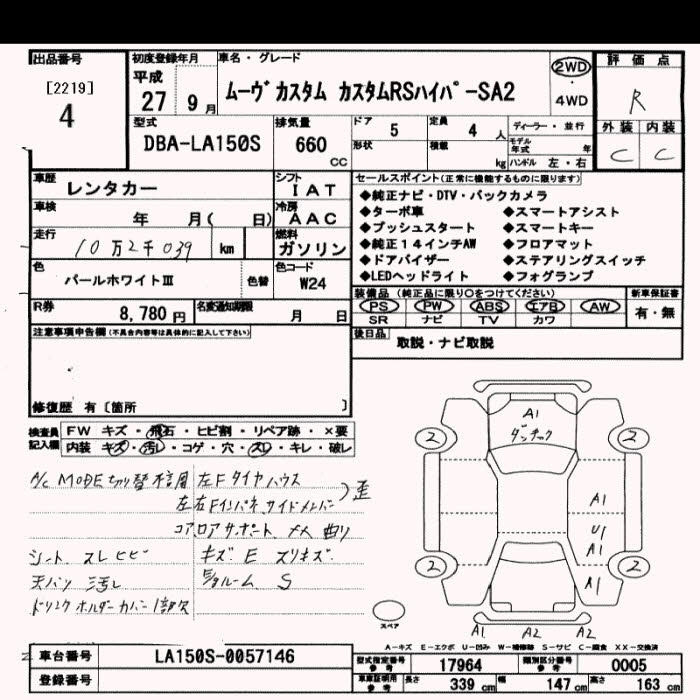 出品番号
[2219]
4
初度登録年月
平成
27 9月
車名・グレード
ムーヴ カスタム カスタムRSハイパーSA2
2WD
・
4WD
評価点
R
外装 内装
C C
型式
DBA-LA150S
排気量
660
CC
ドア 5
定員 4 人
形状
積載 kg
ディーラー・並行
モデル年式 年
ハンドル 左・右
車歴 レンタカー
シフト IAT
車検 年 月( 日)
冷房 AAC
走行 10万2千039 km
燃料 ガソリン
色 パールホワイトⅢ
色替
色コード W24
R券 8,780 円
名変通知期限 月 日
セールスポイント(正常に機能するものに限ります)
◆純正ナビ・DTV・バックカメラ
◆ターボ車 ◆スマートアシスト
◆プッシュスタート ◆スマートキー
◆純正14インチAW ◆フロアマット
◆ドアバイザー ◆ステアリングスイッチ
◆LEDヘッドライト ◆フォグランプ
装備品(純正品に限り○をつけてください)
PS PW ABS エアB AW
SR ナビ TV カワ
新車保証書
有・無
後日品 取説・ナビ取説
注意事項申告欄(不具合内容等は具体的に記入して下さい)
修復歴 有〔箇所 〕
検査員記入欄
FW キズ・飛石・ヒビ割・リペア跡・×要
内装 キズ・汚レ・コゲ・穴・スレ・キレ・破レ
A/C MODE切り替不良
左Fタイヤハウス
左右Fインパネ、サイドメンバー
コアロアサポート、ナメ 曲り
)歪
シート スレ ヒビ
キズ・E スリキズ
天バリ 汚レ
S
ドリンクホルダーカバー1部欠
A1
ダンチック
2 2
A1
U1
A1
2 2
A1
スペア
A1 A2 A2
A-キズ E-エクボ U-凹み W-補修跡 S-サビ C-腐食 XX-交換済
車台番号 LA150S-0057146
登録番号
型式指定番号 参考 17964
類別区分番号 参考 0005
車庫証明用 参考 長さ 339 cm 幅 147 cm 高さ 163 cm